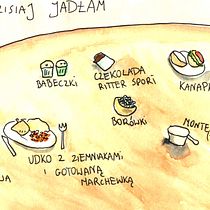 ZISIAJ JADŁAM
BABECZKI
CZEKOLADA
RITTER SPORT
KANAPK
BORÓWKI
MONTE
UDKO Z ZIEMNIAKAMI
I GOTOWANĄ
MARCHEWKĄ
WA